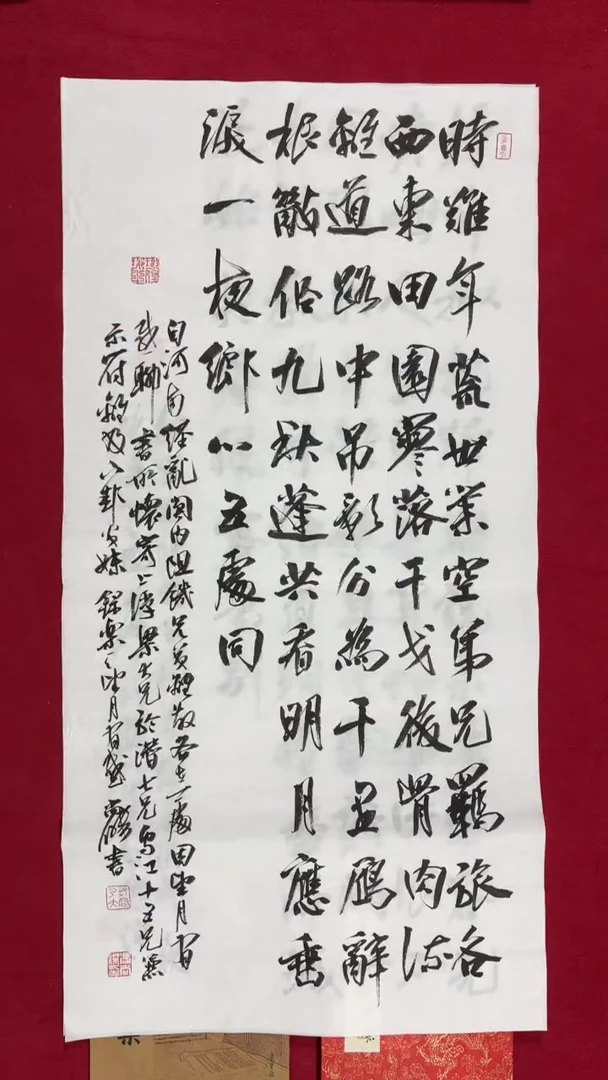 時難年荒世業空弟兄羈旅各
西東田園寥落干戈後骨肉流
離道路中吊影分為千里雁辭
根散作九秋蓬共看明月應垂
淚一夜鄉心五處同
自河南經亂關內阻饑兄弟離散各在一處因望月有
感聊書所懷寄上浮梁大兄於潛七兄烏江十五兄兼
示符離及下邽弟妹 錄樂天望月有感 書